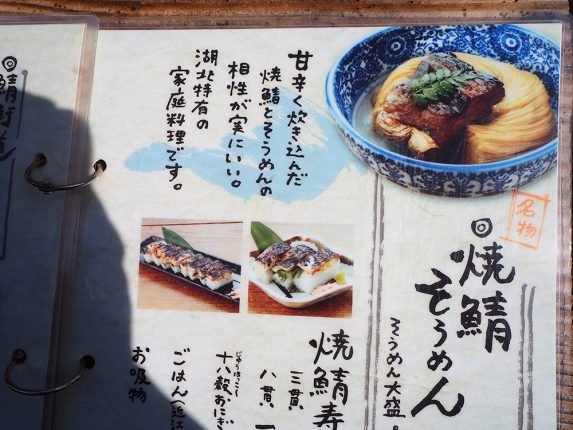 名物
◎焼鯖
そうめん
そうめん大盛。
甘辛く炊き込んだ
焼鯖とそうめんの
相性が実にいい。
湖北特有の
家庭料理です。
焼鯖寿
三貫
八貫
じゅうはちこく
十八穀おにぎ
ごはん(近江
お吸物
◎鯖街道